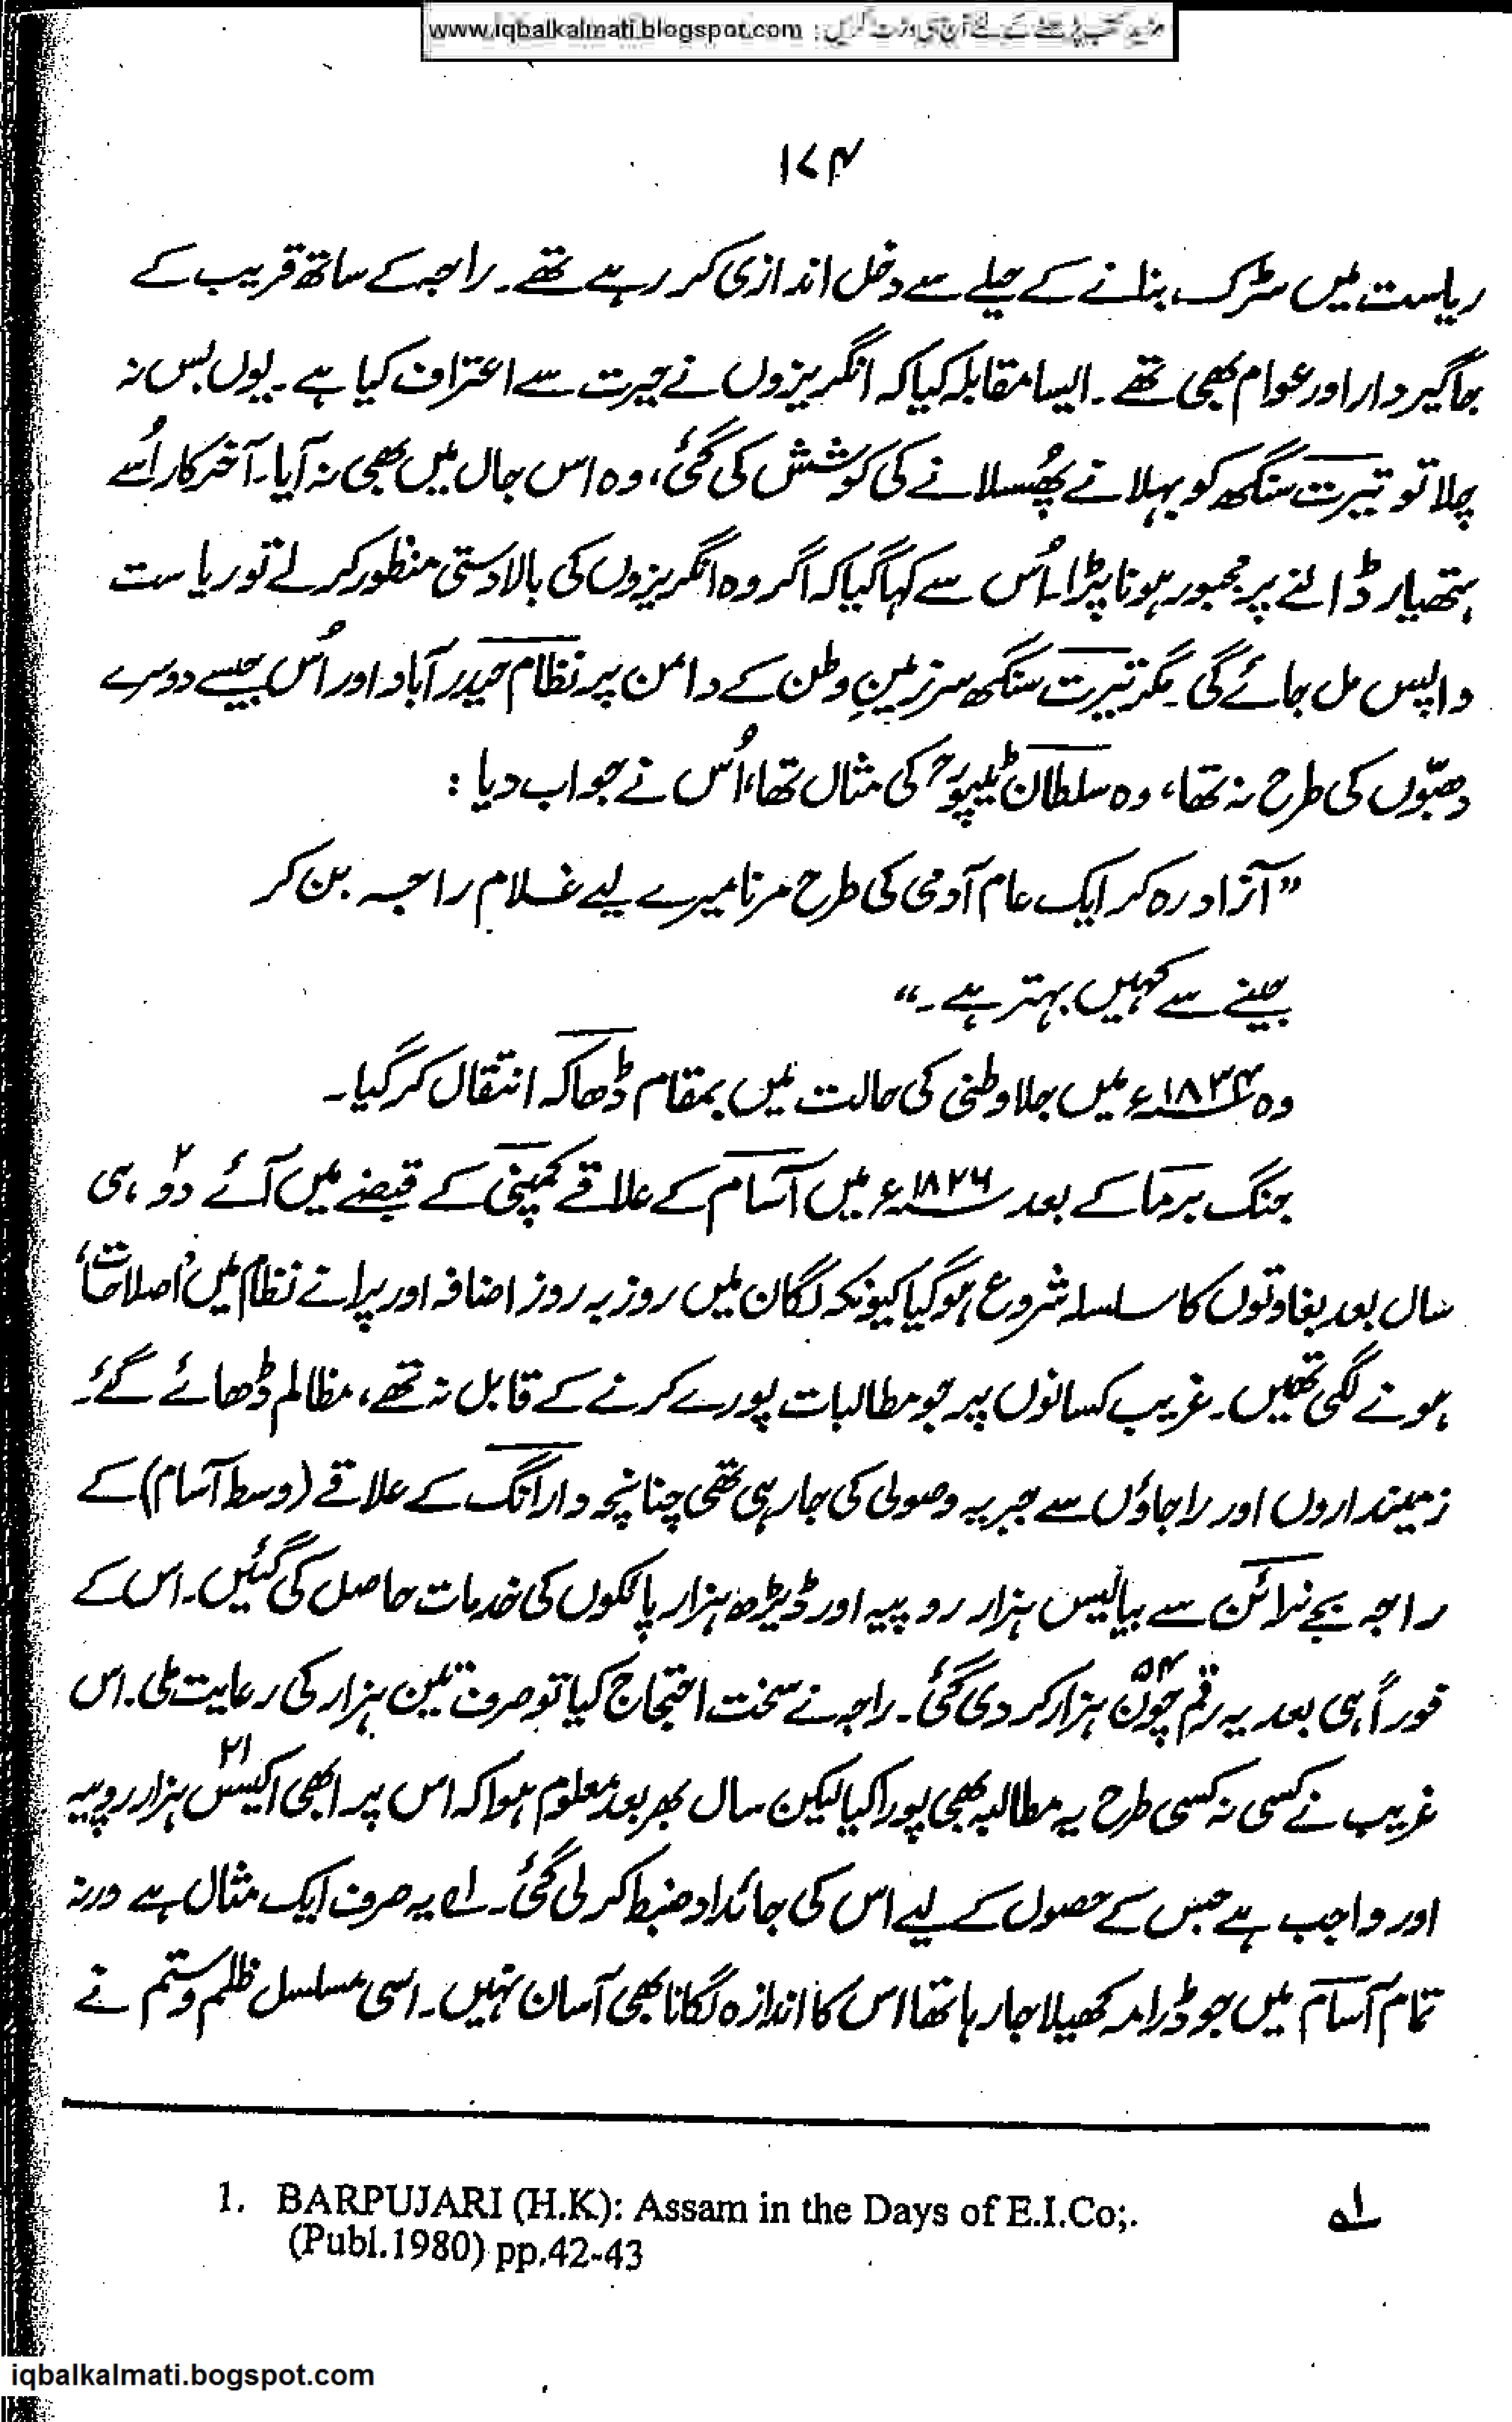 www.iqbalkalmati.blogspot.com : مزید کتب پڑھنے کے لئے آج ہی وزٹ کریں
۱۷۴
ریاست میں سڑک بنانے کے حیلے سے دخل اندازی کر رہے تھے۔ راجہ کے ساتھ قریب کے
جاگیردار اور عوام بھی تھے۔ ایسا مقابلہ کیا کہ انگریزوں نے حیرت سے اعتراف کیا ہے۔ یوں بس نہ
چلا تو تیرت سنگھ کو بہلانے پھُسلانے کی کوشش کی گئی، وہ اس جال میں بھی نہ آیا۔ آخر کار اُسے
ہتھیار ڈالنے پر مجبور ہونا پڑا۔ اُس سے کہا گیا کہ اگر وہ انگریزوں کی بالادستی منظور کر لے تو ریاست
واپس مل جائے گی۔ مگر تیرت سنگھ سرزمینِ وطن کے دامن پر نظام حیدرآباد اور اُس جیسے دوسرے
دھبّوں کی طرح نہ تھا، وہ سلطان ٹیپوؒ کی مثال تھا، اُس نے جواب دیا :
”آزاد رہ کر ایک عام آدمی کی طرح مرنا میرے لیے غلام راجہ بن کر
جینے سے کہیں بہتر ہے۔“
وہ ۱۸۳۴ء میں جلاوطنی کی حالت میں بمقام ڈھاکہ انتقال کر گیا۔
جنگ برما کے بعد ۱۸۲۶ء میں آسام کے علاقے کمپنی کے قبضے میں آئے دو ۲ ہی
سال بعد بغاوتوں کا سلسلہ شروع ہو گیا کیونکہ لگان میں روز بہ روز اضافہ اور پرانے نظام میں ’اصلاحات‘
ہونے لگی تھیں۔ غریب کسانوں پر جو مطالبات پورے کرنے کے قابل نہ تھے، مظالم ڈھائے گئے۔
زمینداروں اور راجاؤں سے جبریہ وصولی کی جا رہی تھی چنانچہ دارانگ کے علاقے (وسط آسام) کے
راجہ بجے نرائن سے بیالیس ہزار روپیہ اور ڈیڑھ ہزار پالکوں کی خدمات حاصل کی گئیں۔ اس کے
فوراً ہی بعد یہ رقم چوّن ۵۴ ہزار کر دی گئی۔ راجہ نے سخت احتجاج کیا تو صرف تین ہزار کی رعایت ملی۔ اس
غریب نے کسی نہ کسی طرح یہ مطالبہ بھی پورا کیا لیکن سال بھر بعد معلوم ہوا کہ اس پر ابھی اکیس ۲۱ ہزار روپیہ
اور واجب ہے جس کے حصول کے لیے اس کی جائداد ضبط کر لی گئی۔ ۱ے یہ صرف ایک مثال ہے ورنہ
تمام آسام میں جو ڈرامہ کھیلا جا رہا تھا اس کا اندازہ لگانا بھی آسان نہیں۔ اسی مسلسل ظلم و ستم نے
۱ے 1. BARPUJARI (H.K): Assam in the Days of E.I.Co;.
(Publ.1980) pp.42-43
iqbalkalmati.bogspot.com